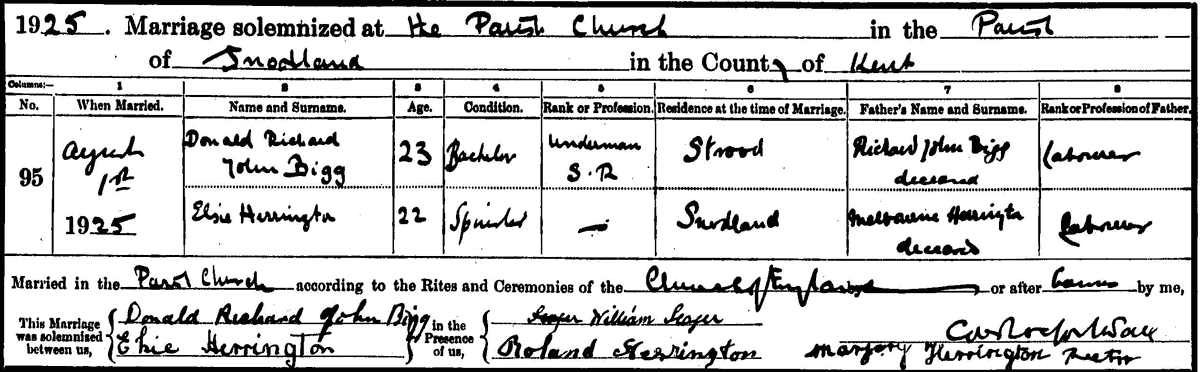 1925. Marriage solemnized at the Parish Church in the Parish
of Snodland in the County of Kent
Columns:— 1 2 3 4 5 6 7 8
No. When Married. Name and Surname. Age. Condition. Rank or Profession. Residence at the time of Marriage. Father's Name and Surname. Rank or Profession of Father.
95 August 1st 1925
Donald Richard John Bigg 23 Bachelor Underman S.R Strood Richard John Bigg deceased Labourer
Elsie Herrington 22 Spinster — Snodland Melbourne Herrington deceased Labourer
Married in the Parish Church according to the Rites and Ceremonies of the Church of England or after banns by me,
This Marriage was solemnized between us, { Donald Richard John Bigg
Elsie Herrington } in the Presence of us, { William
Roland Herrington
Marjory Herrington Rector